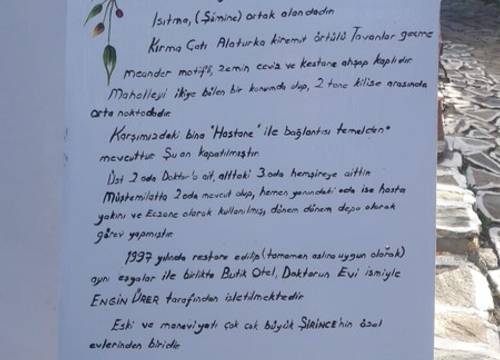 Isıtma, (Şömine) ortak alandadır
Kırma Çatı Alaturka kiremit örtülü Tavanlar geçme
meander motifli, zemin ceviz ve kestane ahşap kaplıdır
Mahalleyi ikiye bölen bir konumda olup, 2 tane kilise arasında
orta noktadadır.
Karşımızdaki bina "Hastane" ile bağlantısı temelden
mevcuttur Şu an kapatılmıştır.
Üst 2 oda Doktor'a ait, alttaki 3 oda hemşireye aittir
Müştemilatta 2 oda mevcut olup, hemen yanındaki oda ise hasta
yakını ve Eczane olarak kullanılmış, dönem dönem depo olarak
görev yapmıştır.
1997 yılında restore edilip (tamamen aslına uygun olarak)
aynı eşyalar ile birlikte Butik Otel, Doktorun Evi ismiyle
ENGİN ÜRER tarafından işletilmektedir
Eski ve maneviyatı çok çok büyük ŞİRİNCE'nin özel
evlerinden biridir.